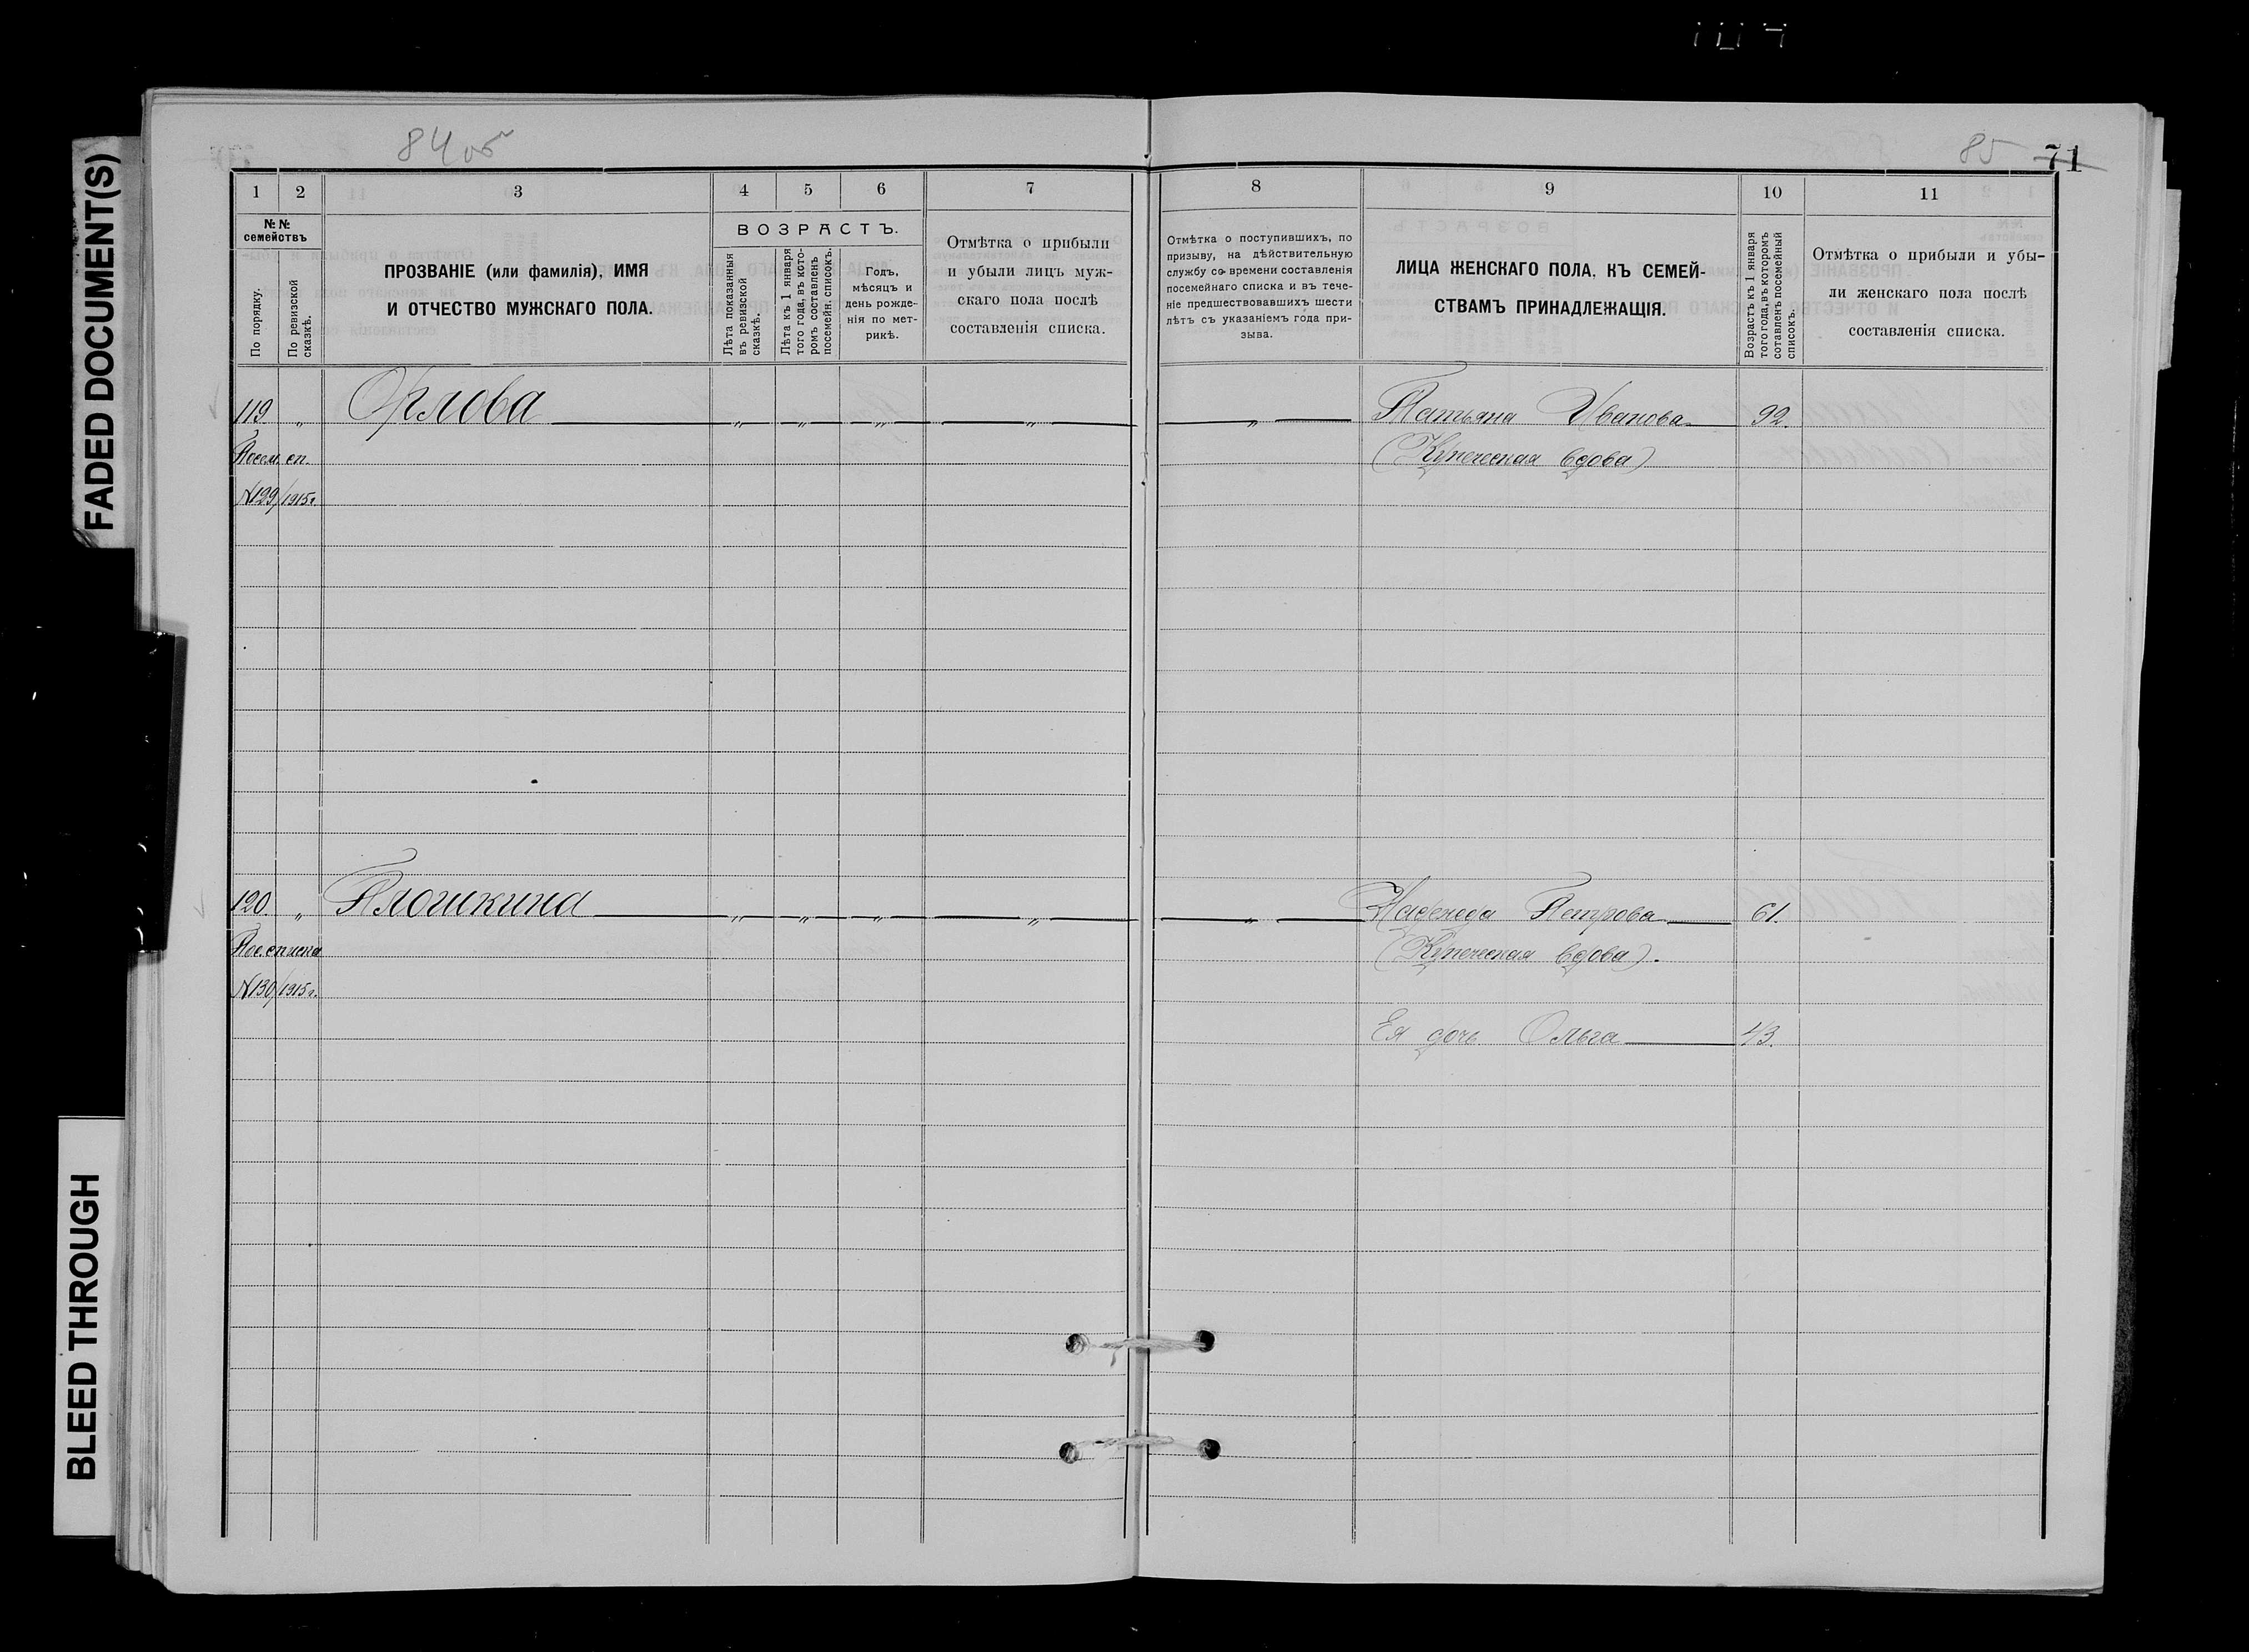 FADED DOCUMENT(S)
BLEED THROUGH
84об
85 71
1 2 3 4 5 6 7
№ №
семействъ
По порядку.
По ревизской
сказкѣ.
ПРОЗВАНІЕ (или фамилія), ИМЯ
И ОТЧЕСТВО МУЖСКАГО ПОЛА.
ВОЗРАСТЪ.
Лѣта показанныя
въ ревизской
сказкѣ.
Лѣта къ 1 января
того года, въ кото-
ромъ составленъ
посемейн. списокъ.
Годъ,
мѣсяцъ и
день рожде-
нія по мет-
рикѣ.
Отмѣтка о прибыли
и убыли лицъ муж-
скаго пола послѣ
составленія списка.
119 „ Орлова „ „ „ „
Посем. сп.
№129/1915г.
120. „ Плошкина „ „ „ „
Пос. списка
№130/1915г.
8 9 10 11
Отмѣтка о поступившихъ, по
призыву, на дѣйствительную
службу со времени составленія
посемейнаго списка и въ тече-
ніе предшествовавшихъ шести
лѣтъ съ указаніемъ года при-
зыва.
ЛИЦА ЖЕНСКАГО ПОЛА. КЪ СЕМЕЙ-
СТВАМЪ ПРИНАДЛЕЖАЩІЯ.
Возрастъ къ 1 января
того года, въ которомъ
сотавленъ посемейный
списокъ.
Отмѣтка о прибыли и убы-
ли женскаго пола послѣ
составленія списка.
„ Татьяна Иванова 92.
(Купеческая вдова)
„ Надежда Петрова 61.
(Купеческая вдова).
Ея дочь Ольга 43.